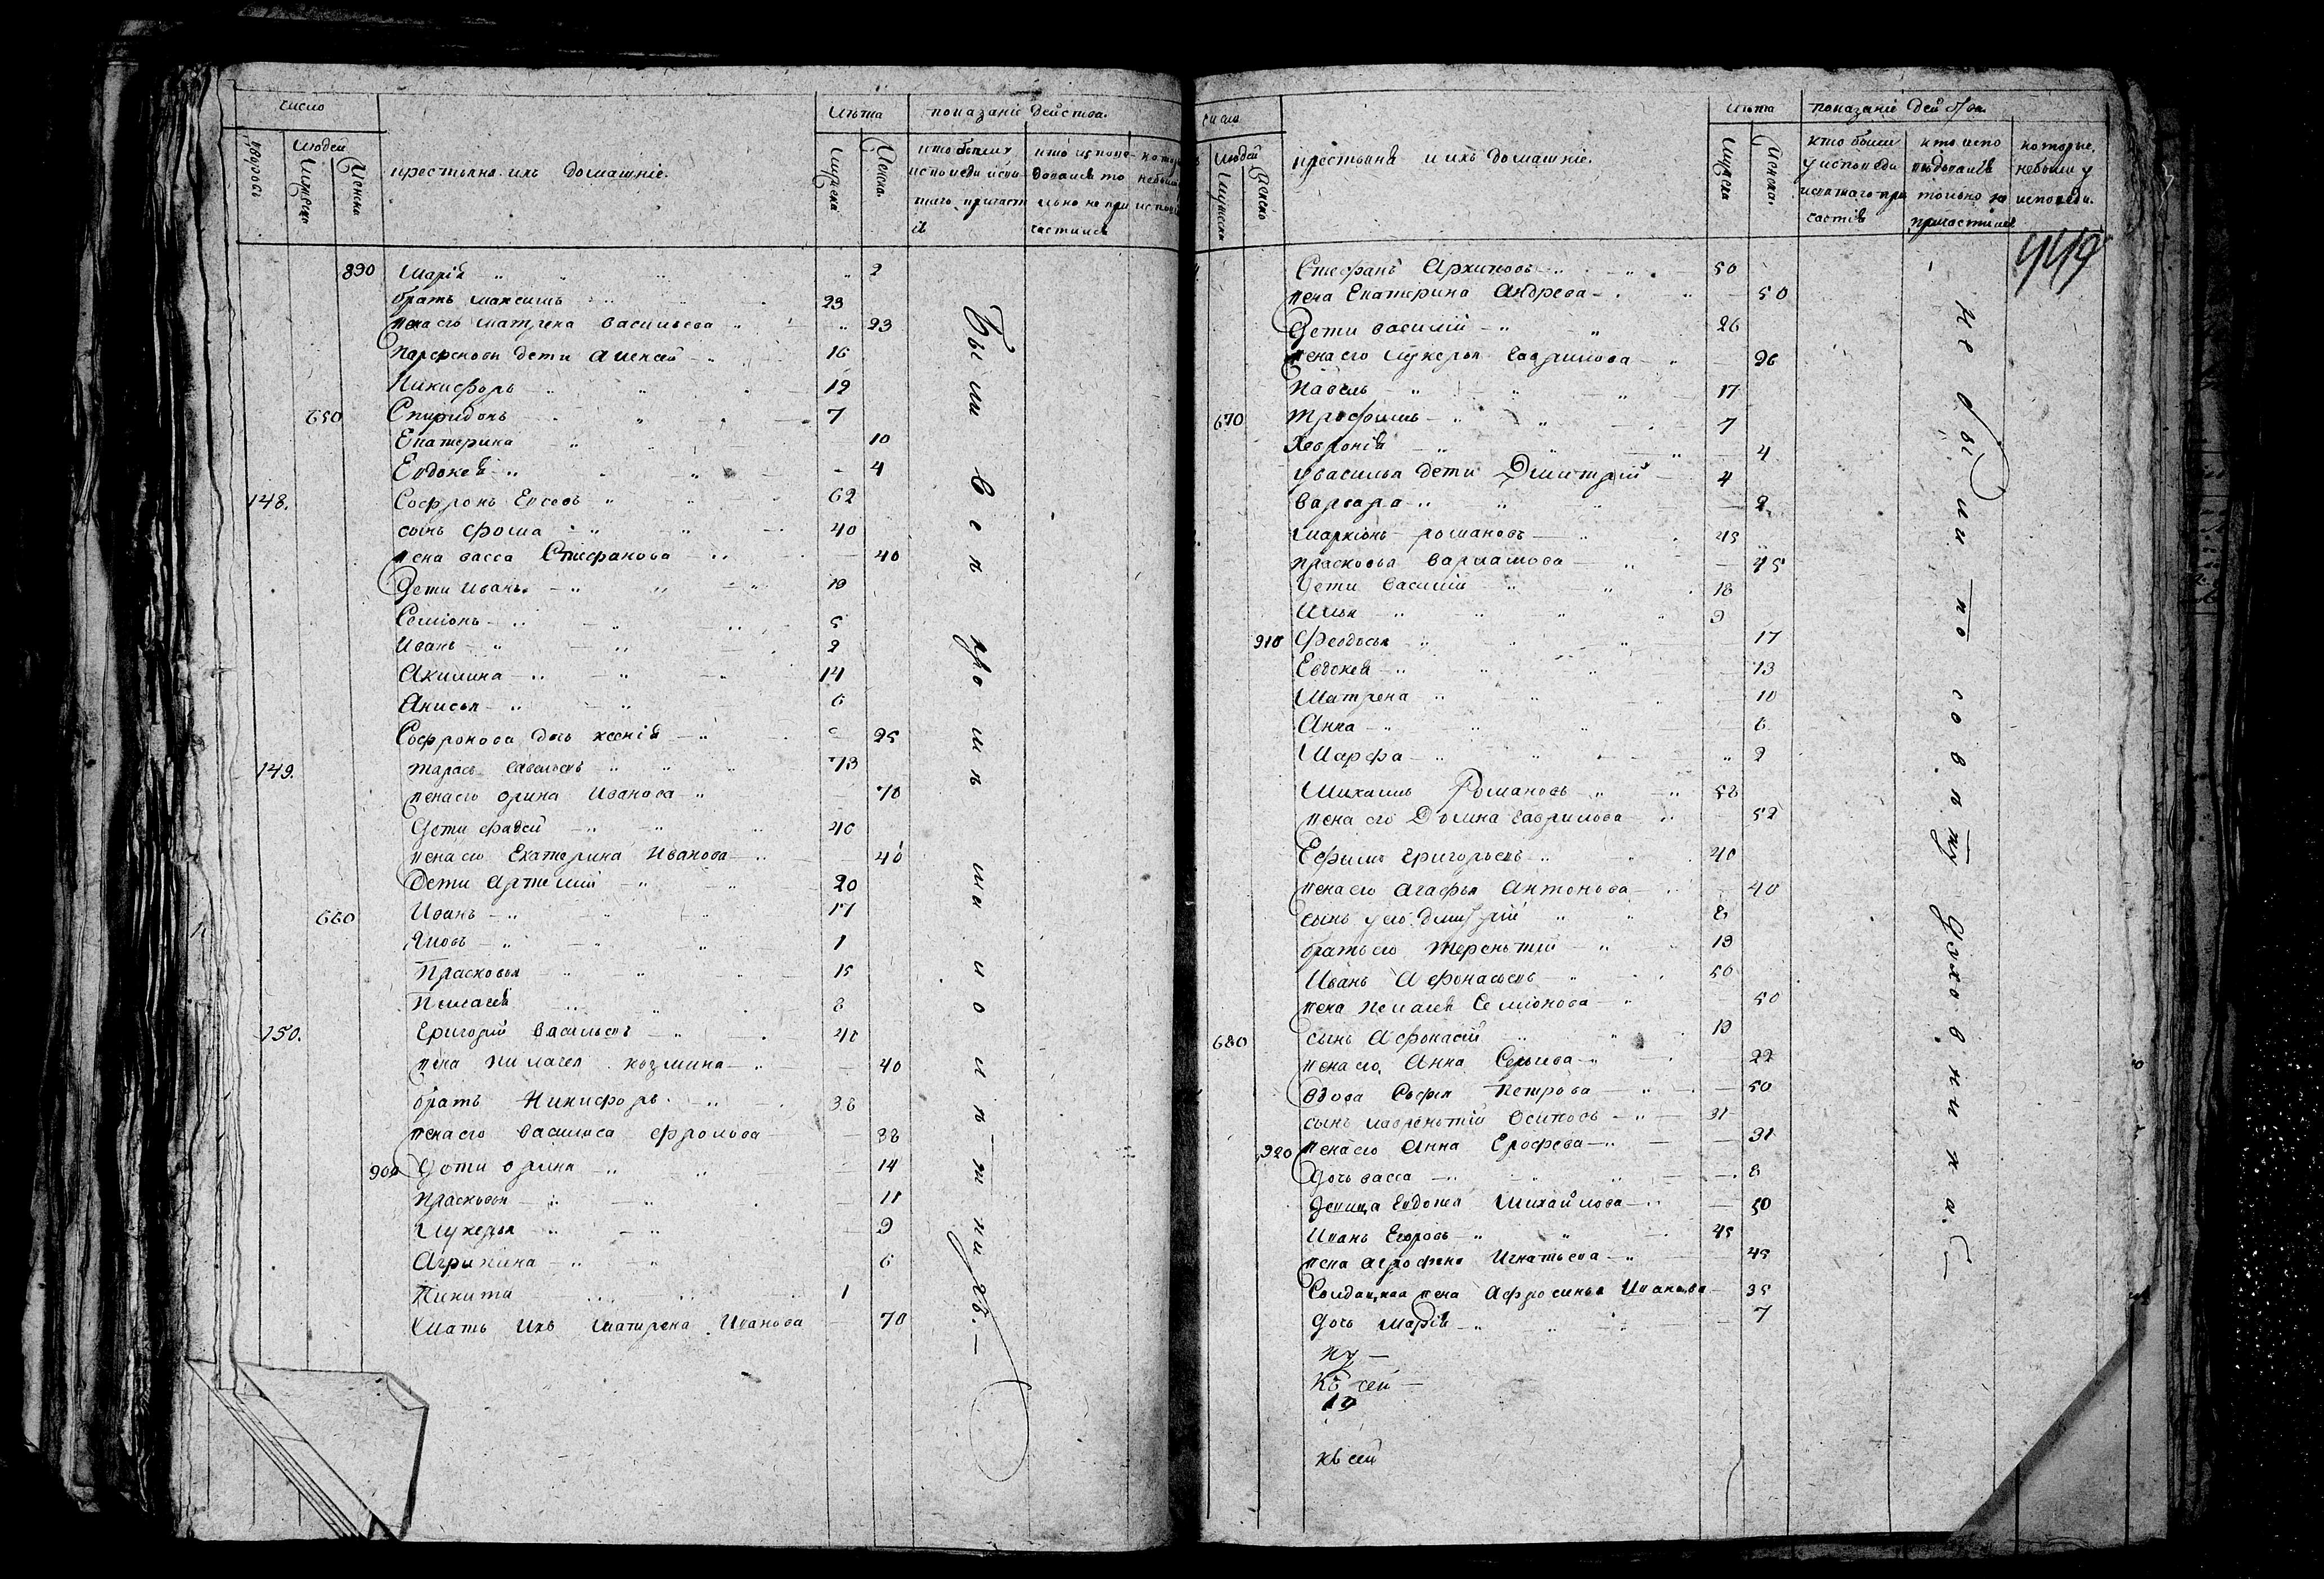 число
людей
дворовъ
мужеска
женска
престьяне ихъ домашніе.
лѣта
мужеска
женска
показаніе действа.
кто были у исповеди и святаго причаст
кто испове-довался то лько не при частился
890 Марія 2
братъ максимъ 23
жена его матрена васильева 23
парфенова дети алексей 16
Никифоръ 12
650 Спиридонъ 7
Екатерина 10
Евдокея 4
148. Софронъ Евсевъ 62
сынъ фома 40
жена васса Стефанова 40
Дети иванъ 10
Семіонъ 5
иванъ 2
Акилина 14
Анисья 6
Софронова дочь ксенія 25
149. тарасъ савельевъ 73
жена его орина иванова 70
Дети фадей 40
жена его Екатерина иванова 40
Дети артемій 20
660 Иванъ 17
Яковъ 1
Прасковья 15
Пелагея 8
150. Григорій васильевъ 40
жена пелагея козмина 40
братъ Никифоръ 38
жена его василиса фролова 38
900 Дети орина 14
Прасковья 11
Лукерья 9
Агрипина 6
Никита 1
Мать ихъ матрена иванова 70
были
людей
мужеска
женска
престьяне и ихъ домашніе.
лѣта
мужеска
женска
показаніе действа.
кто были у исповеди и святаго при частія
кто испо ведовался только не причастился
которые небыли у исповеди.
449
Стефанъ Архиповъ 50
жена Екатерина Андреева 50
Дети василій 26
жена его лукерья гаврилова 26
Павелъ 17
670 трофимъ 7
Хевронія 4
у василья дети Дмитрій 4
варвара 2
Маркіонъ романовъ 45
прасковья варламова 45
Дети василій 18
Илья 9
910 Феодосья 17
Евдокея 13
Матрена 10
Анна 6
Марфа 2
Михаилъ Романовъ 52
жена его Домна гаврилова 52
Ефимъ григорьевъ 40
жена его агафья антонова 40
сынъ у его дмитрій 8
братъ его терентій 19
Иванъ Афонасьевъ 50
жена пелагея Семіонова 50
680 сынъ Афонасій 19
жена его Анна 22
вдова Софья Петрова 50
сынъ лаврентій Осиповъ 31
920 жена его Анна Ерофеева 31
Дочь васса 8
девица евдокея михайлова 50
Иванъ Егоровъ 45
жена аграфена Игнатьева 45
Солдацкая жена Афросинья Иванова 35
Дочь марія 7
не были по совѣту духовника
ну
Къ сей
10
къ сей